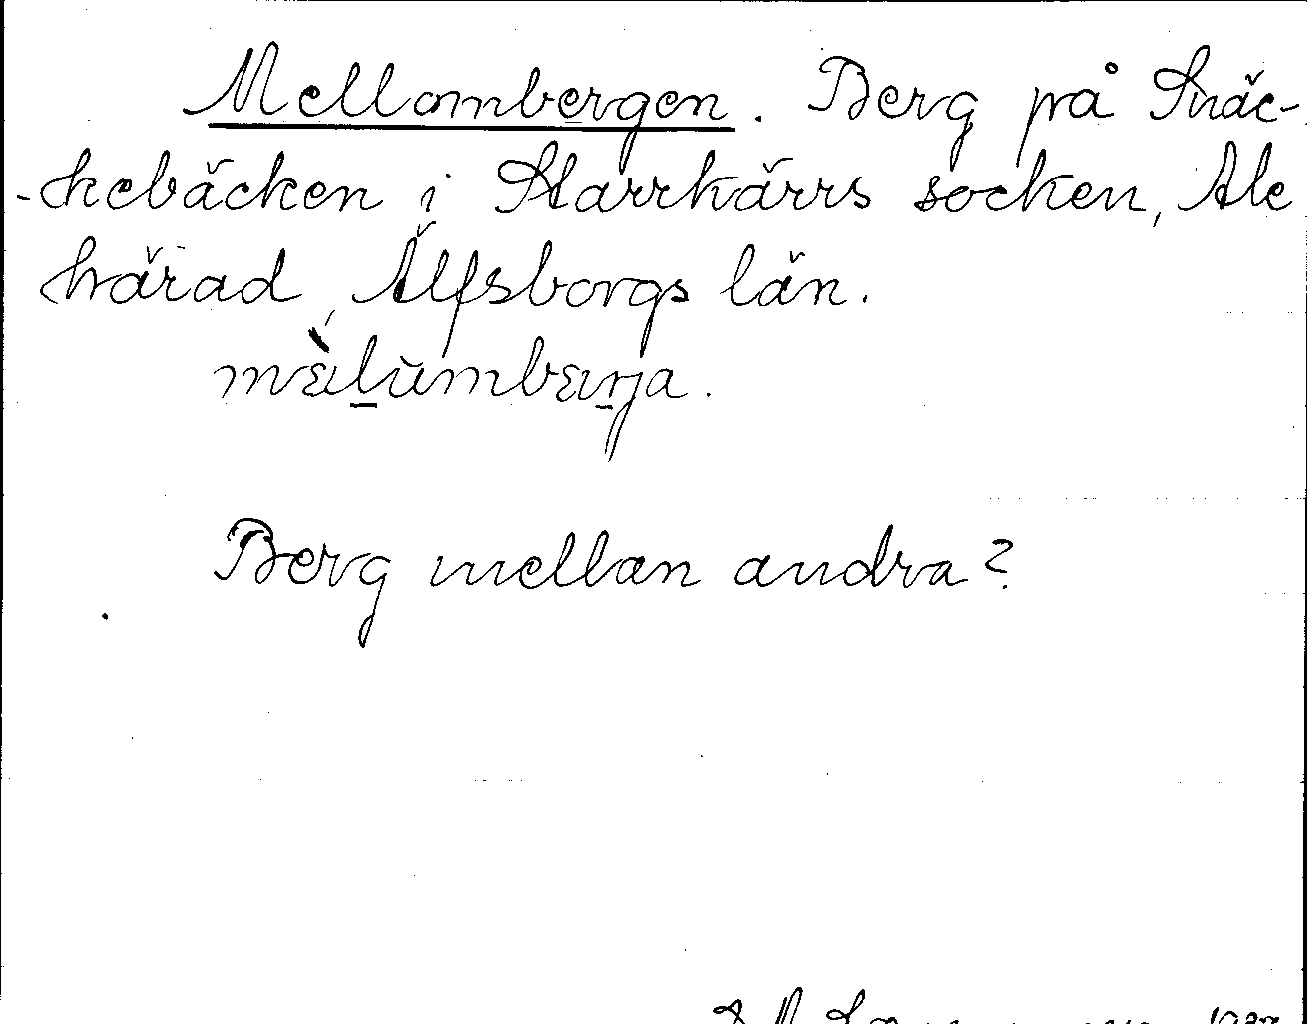 Mellombergen. Berg på Snäc-
-kebäcken i Starrkärrs socken, Ale
härad, Älfsborgs län.
mὲlumbærja.
Berg mellan andra?